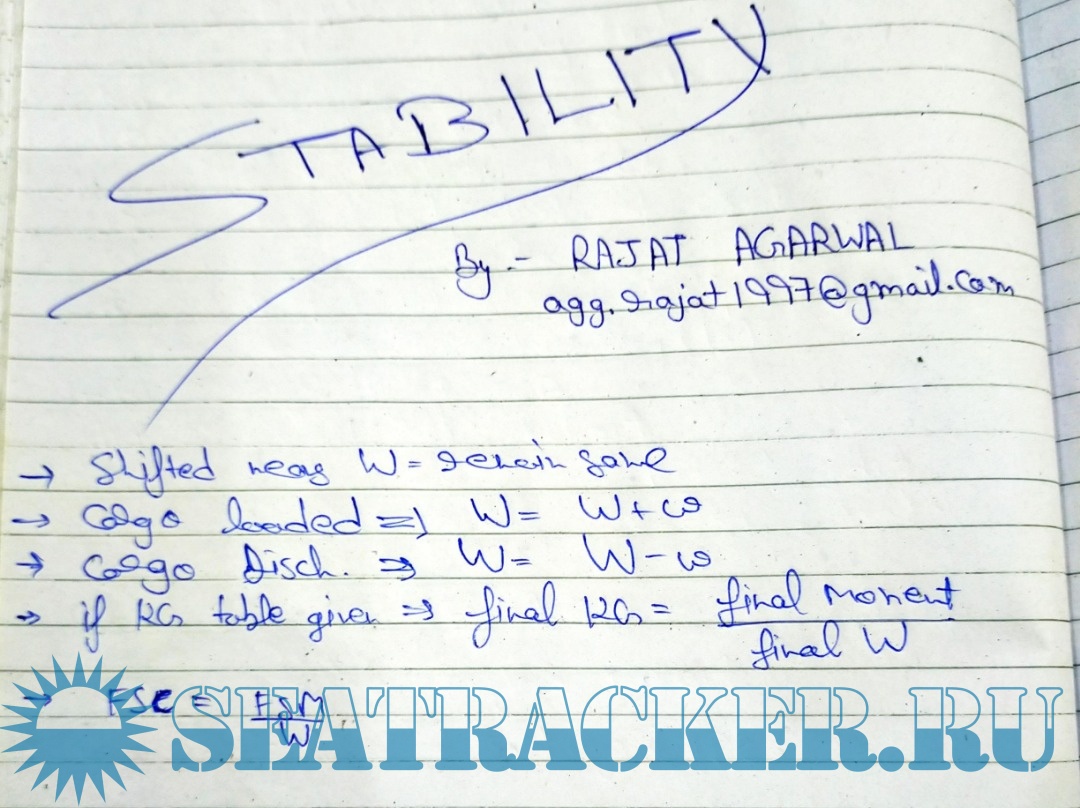 STABILITY
By :- RAJAT AGARWAL
agg.rajat1997@gmail.com
→ Shifted means W = remain same
→ Cargo loaded ⇒ W = W + w
→ Cargo Disch. ⇒ W = W - w
→ if KG table given ⇒ final KG = final Moment / final W
→ FSC = FSM / W
SEATRACKER.RU